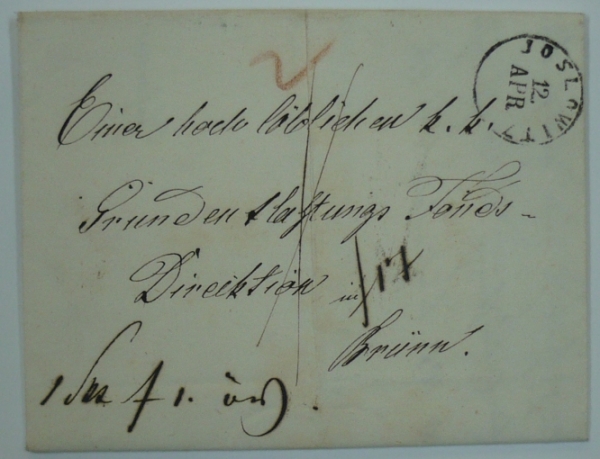 JOSLOWITZ
12
APR
Einer hochlöblichen k. k.
Grundentlastungs Fonds-
Direcktion in
Brünn.